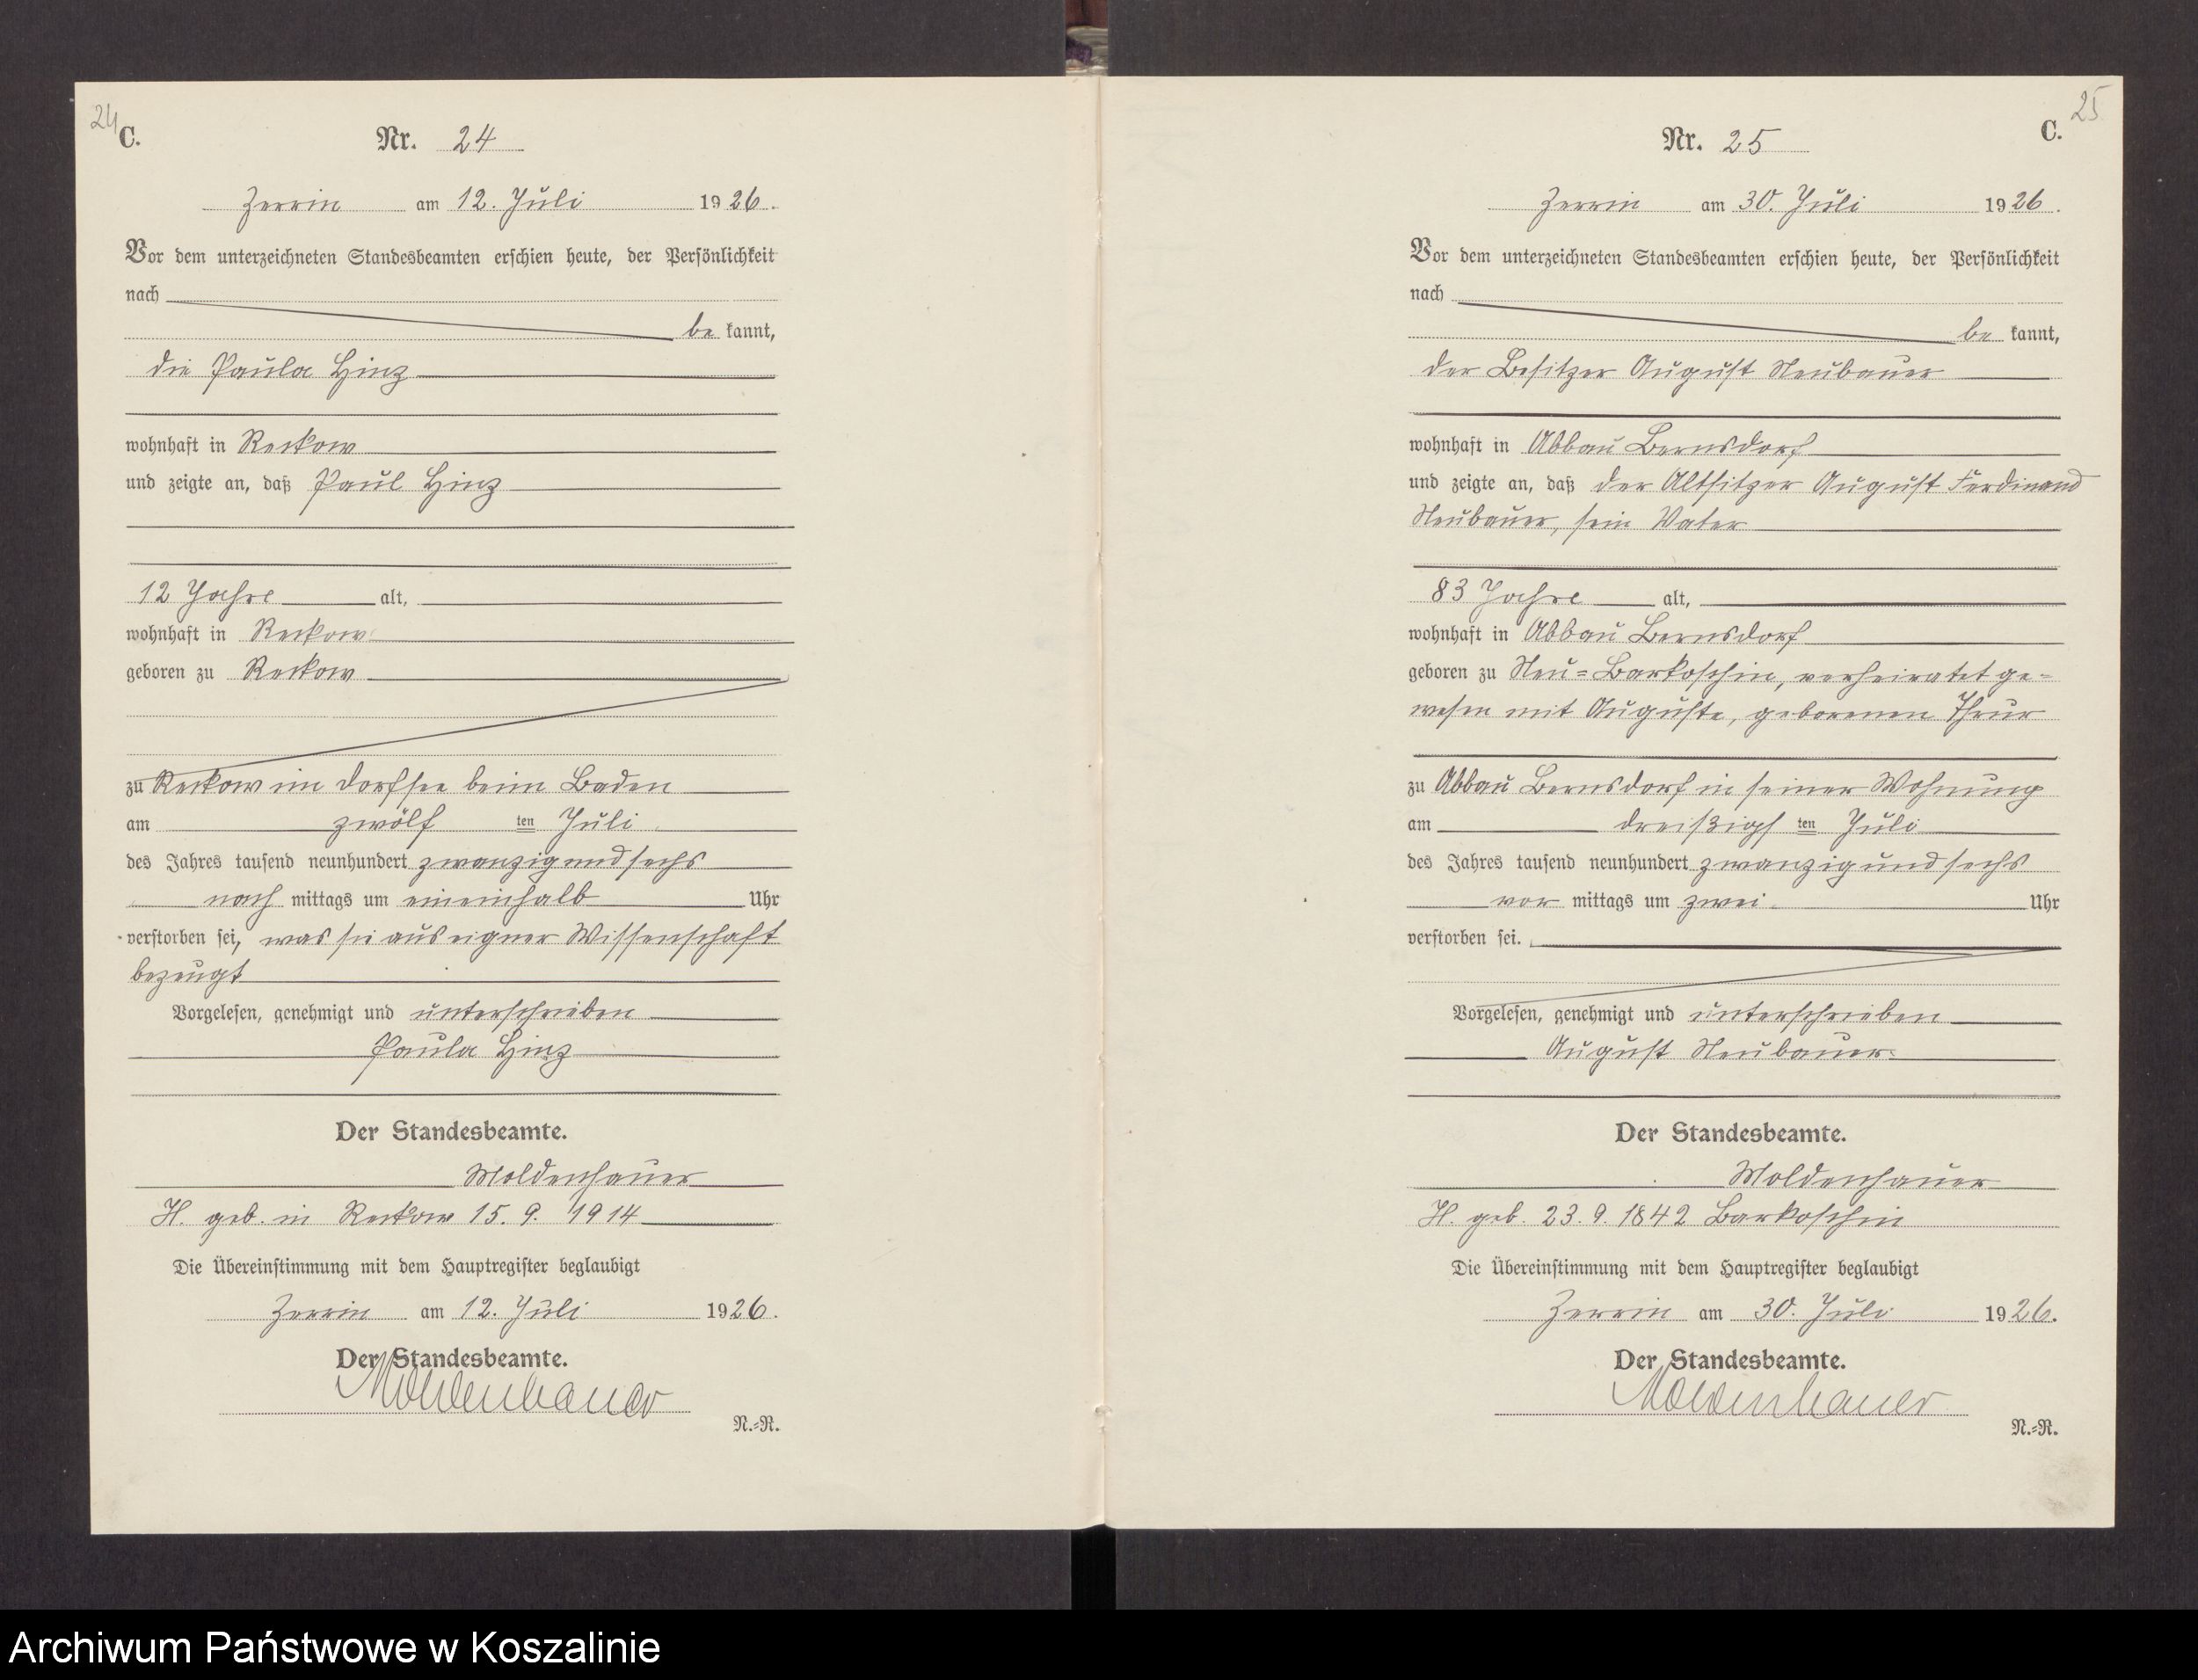 24
C.
Nr. 24
Zerrin am 12. Juli 1926.
Vor dem unterzeichneten Standesbeamten erschien heute, der Persönlichkeit
nach
be kannt,
die Paula Hinz
wohnhaft in Reckow
und zeigte an, daß Paul Hinz
12 Jahre alt,
wohnhaft in Reckow
geboren zu Reckow
zu Reckow im Dorfsee beim Baden
am zwölf ten Juli
des Jahres tausend neunhundert zwanzig und sechs
nach mittags um eineinhalb Uhr
verstorben sei, was sie aus eigner Wissenschaft
bezeugt
Vorgelesen, genehmigt und unterschrieben
Paula Hinz
Der Standesbeamte.
Moldenhauer
H. geb. in Reckow 15. 9. 1914
Die Übereinstimmung mit dem Hauptregister beglaubigt
Zerrin am 12. Juli 1926.
Der Standesbeamte.
Moldenhauer
N.=R.
25
C.
Nr. 25
Zerrin am 30. Juli 1926.
Vor dem unterzeichneten Standesbeamten erschien heute, der Persönlichkeit
nach
be kannt,
der Besitzer August Neubauer
wohnhaft in Abbau Bernsdorf
und zeigte an, daß der Altsitzer August Ferdinand
Neubauer, sein Vater
83 Jahre alt,
wohnhaft in Abbau Bernsdorf
geboren zu Neu=Barkoschin, verheiratet ge=
wesen mit Auguste, geborenen
zu Abbau Bernsdorf in seiner Wohnung
am dreißigs ten Juli
des Jahres tausend neunhundert zwanzig und sechs
vor mittags um zwei Uhr
verstorben sei.
Vorgelesen, genehmigt und unterschrieben
August Neubauer
Der Standesbeamte.
Moldenhauer
H. geb. 23. 9. 1842 Barkoschin
Die Übereinstimmung mit dem Hauptregister beglaubigt
Zerrin am 30. Juli 1926.
Der Standesbeamte.
Moldenhauer
N.=R.
Archiwum Państwowe w Koszalinie